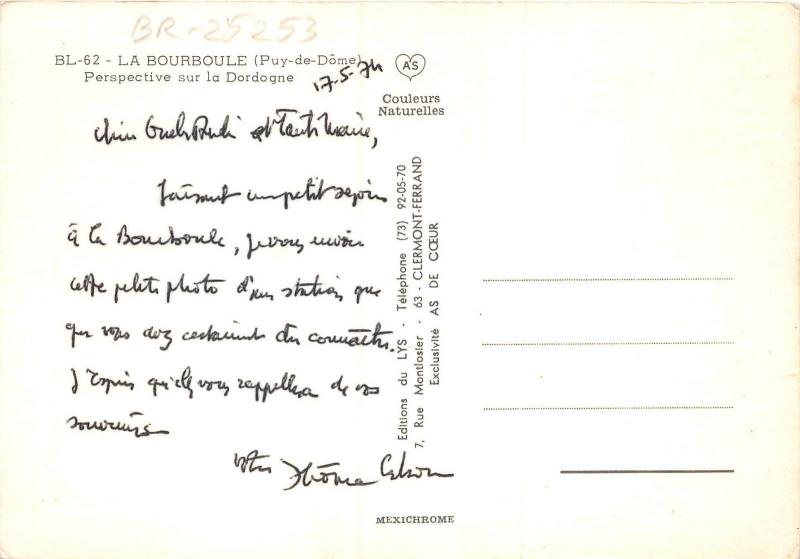 BR-25253
BL-62 - LA BOURBOULE (Puy-de-Dôme)
Perspective sur la Dordogne
17-5-74
AS
Couleurs
Naturelles
et
faisant un petit séjour
à la Bourboule, je vous envoie
cette petite photo d'une station que
que vous devez certainement connaître.
J'espère qu'elle vous rappellera de vos
souvenirs
votre
Editions du LYS - Téléphone (73) 92-05-70
7, Rue Montlosier - 63 - CLERMONT-FERRAND
Exclusivité AS DE CŒUR
MEXICHROME